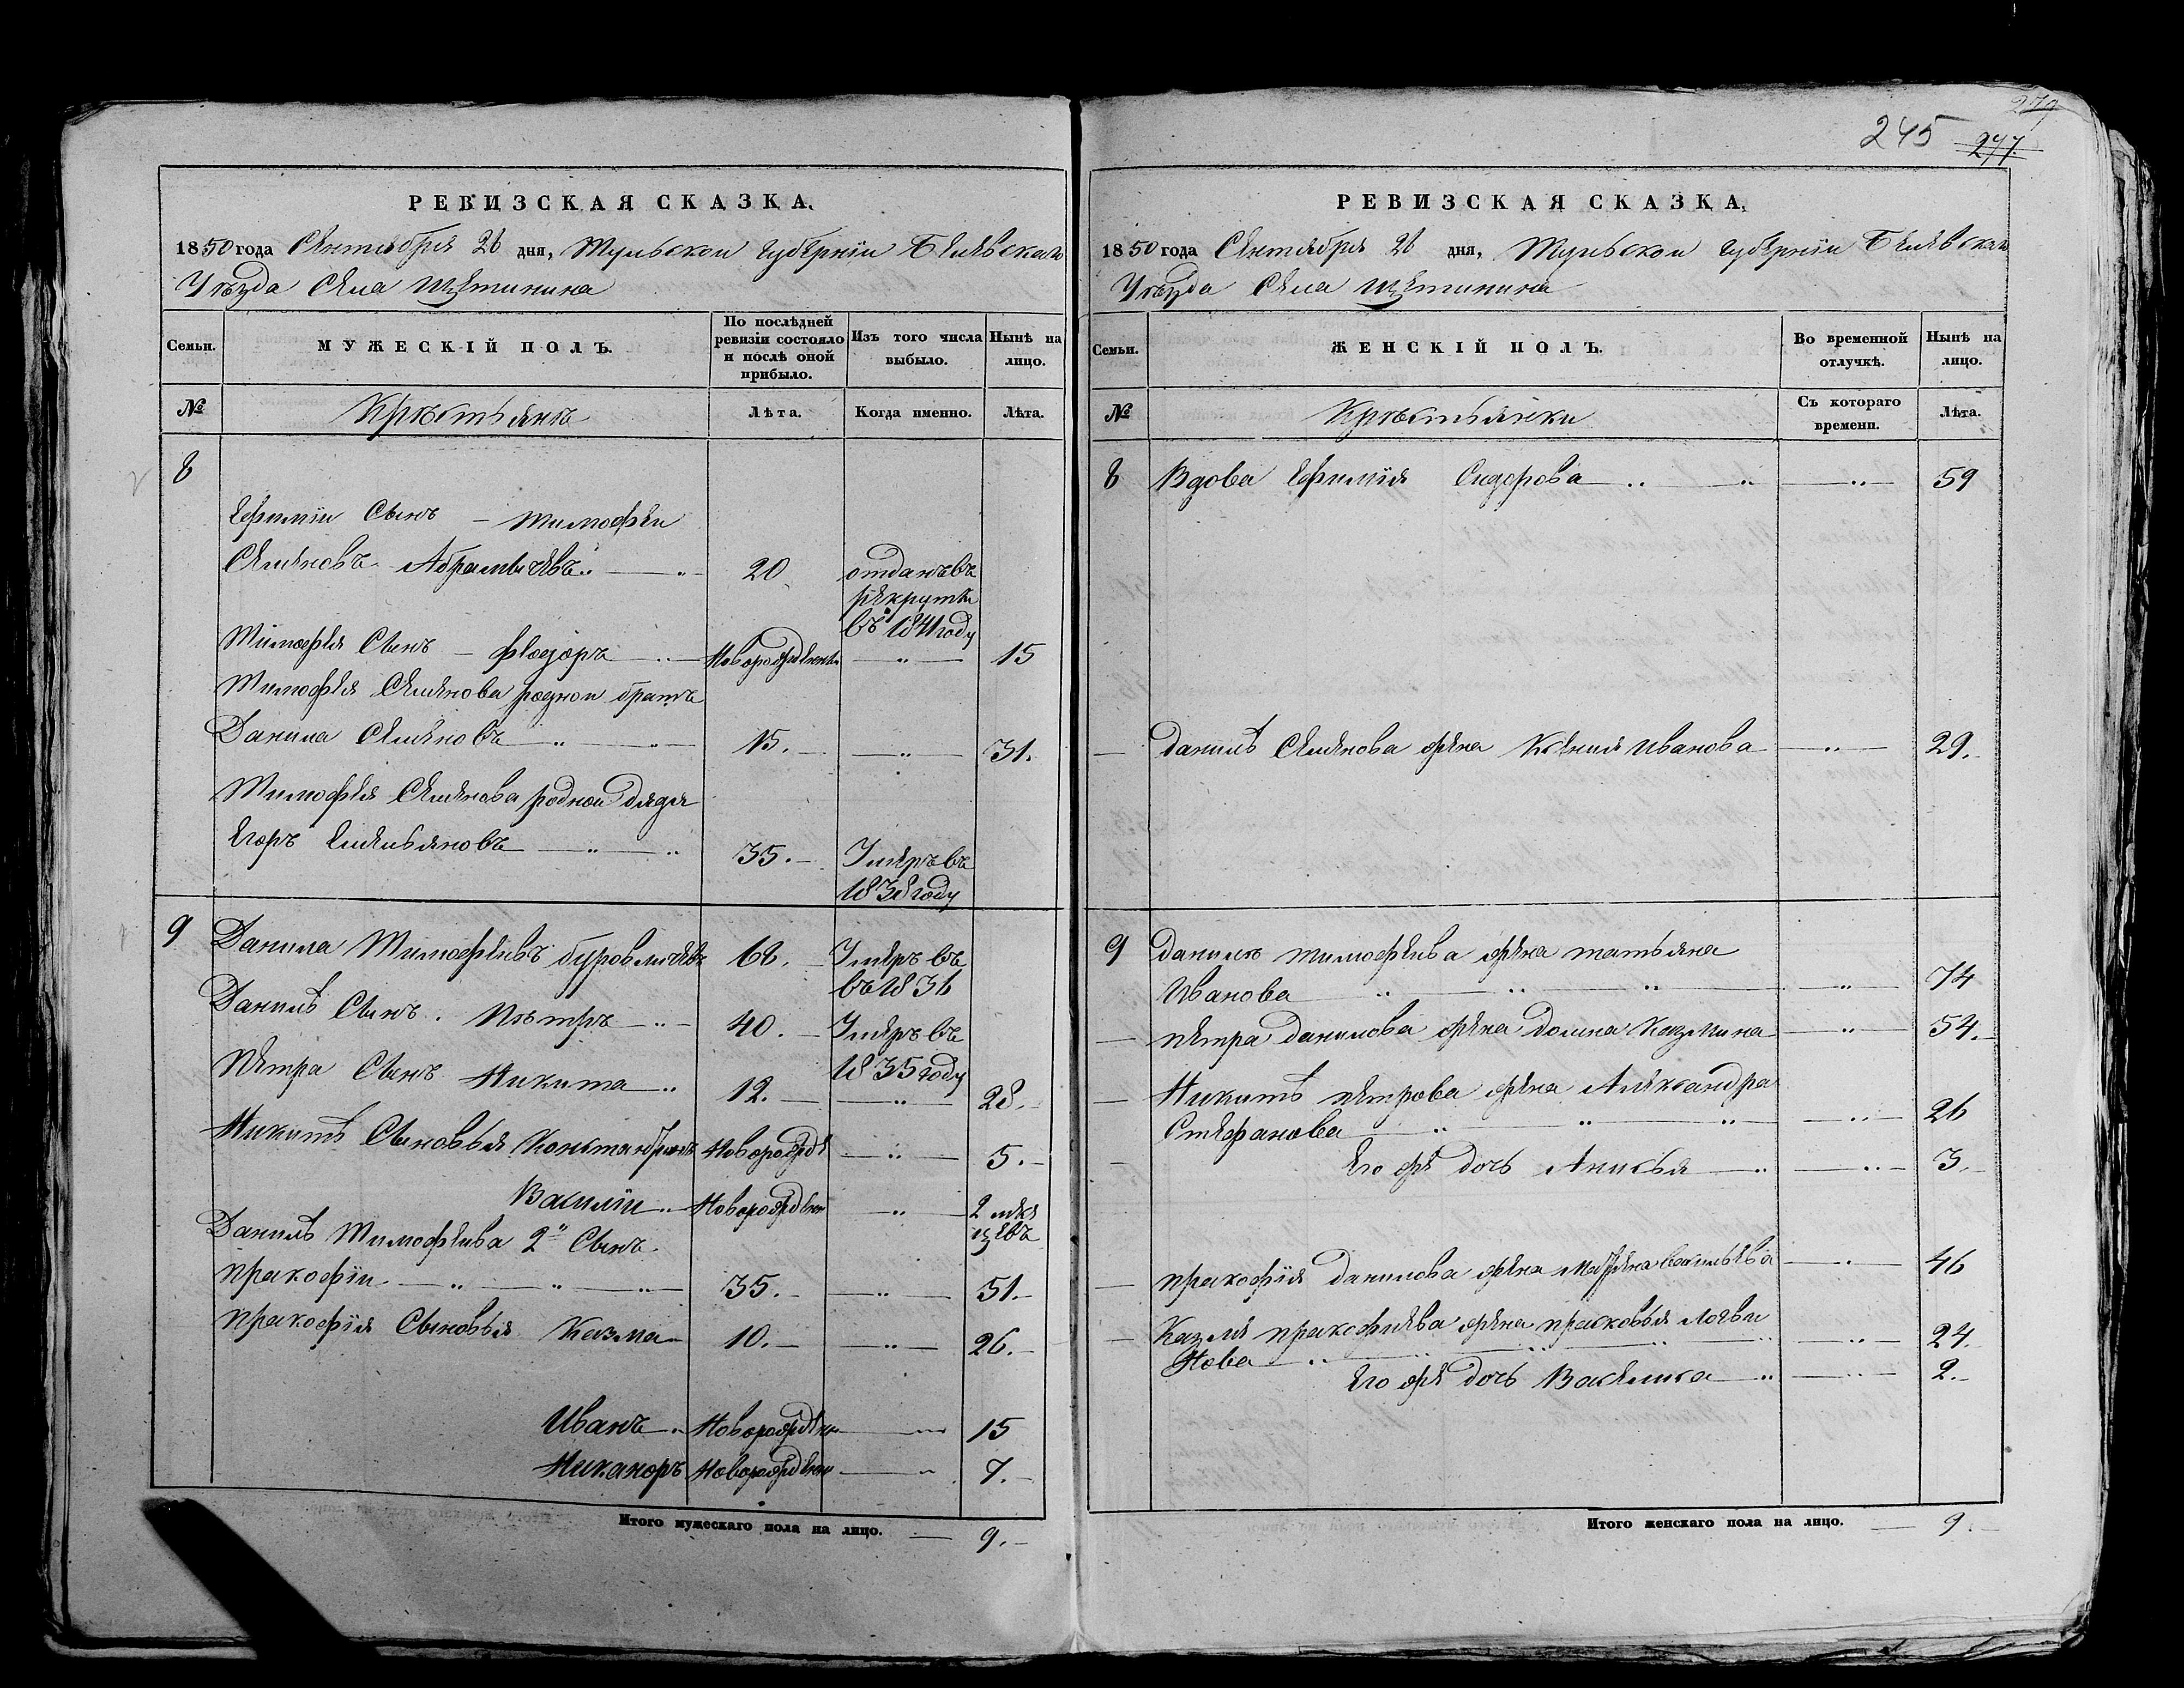 279
245 247.
РЕВИЗСКАЯ СКАЗКА.
1850 года Сентября 26 дня, Тульской губернїи Белевскаго
Уѣзда Села Щетинина
Семьи.
МУЖЕСКІЙ ПОЛЪ.
По послѣдней ревизіи состояло и послѣ оной прибыло.
Изъ того числа выбыло.
Нынѣ на лицо.
№
Крѣстьянѣ
Лѣта.
Когда именно.
Лѣта.
8
Ефимїи Сынъ — тимофеи
Семеновъ Абрамычевъ 20 отданъ въ
рекруты
въ 1841 году
Тимофея Сынъ — Флодоръ Новорожденны 15
Тимофея Семенова родной братъ
Данила Семеновъ 15. 31.
Тимофея Семенова родной дядя
Егоръ Емельяновъ 35. Умеръ въ
1838 году
9 Данила Тимофеивъ 68. Умеръ въ
въ 1836
Данилы Сынъ. Пѣтръ 40. Умеръ въ
1835 году
Петра Сынъ Никита 12. 28.
Никиты Сыновья Новорожде 5.
Василїи Новорожденн 2 меся
цевъ
Данилы Тимофеива 2й Сынъ.
пракофїи 35. 51.
пракофїя Сыновья Казма 10. 26.
Иванъ Новорожден 15
Никаноръ Новорожденн 7.
Итого мужескаго пола на лицо. 9.
РЕВИЗСКАЯ СКАЗКА.
1850 года Сентября 26 дня, Тульской губернїи Белевскаго
Уѣзда Села щетинина
Семьи.
ЖЕНСКІЙ ПОЛЪ.
Во временной отлучкѣ.
Нынѣ на лицо.
№
Крѣстьянки
Съ котораго времени.
Лѣта.
8 Вдова Ефимїя Сидорова 59
данилы Семенова жена Ксения иванова 29.
9 данилы тимофеива жена татьяна
Иванова 74
петра данилова жена домна Казмина 54.
Никиты петрова жена Александра
Стефанова 26
Его же дочь Анисья 3.
пракофїя данилова жена васильева 46
Казмы пракофиева жена прасковья логви
нова 24.
Его же дочь Василиса 2.
Итого женскаго пола на лицо. 9.